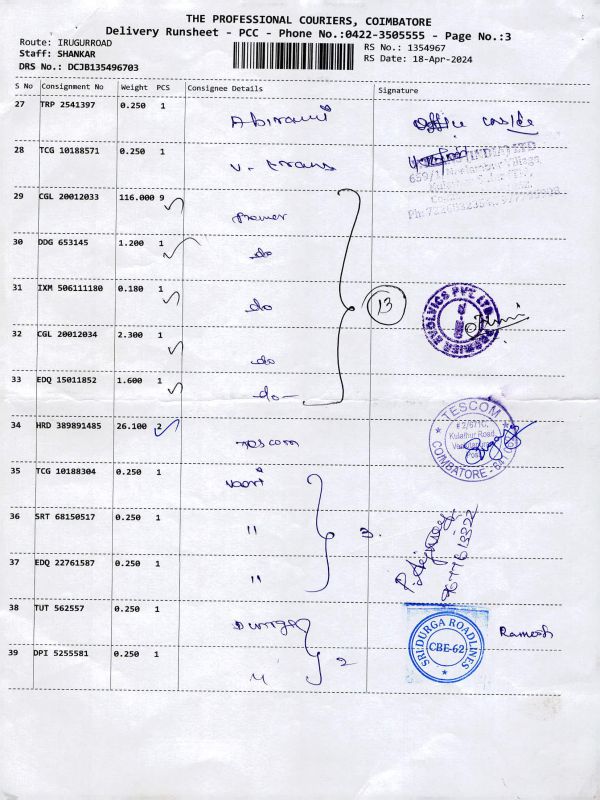 THE PROFESSIONAL COURIERS, COIMBATORE
Delivery Runsheet - PCC - Phone No.:0422-3505555 - Page No.:3
Route: IRUGURROAD
Staff: SHANKAR
DRS No.: DCJB135496703
RS No.: 1354967
RS Date: 18-Apr-2024
S No Consignment No Weight PCS Consignee Details Signature
27 TRP 2541397 0.250 1 Abirami Office
28 TCG 10188571 0.250 1 V. Trans
29 CGL 20012033 116.000 9 Premier
30 DDG 653145 1.200 1 do
31 IXM 506111180 0.180 1 do 13
PREMIER EVOLVICS PVT LTD
32 CGL 20012034 2.300 1 do
33 EDQ 15011852 1.600 1 do
34 HRD 389891485 26.100 2 Tescom
TESCOM
# 2/671C,
Kulathur Road,
COIMBATORE
35 TCG 10188304 0.250 1
36 SRT 68150517 0.250 1 " 3.
37 EDQ 22761587 0.250 1 "
38 TUT 562557 0.250 1 Durga Ramesh
SRI DURGA ROADLINES
CBE-62
39 DPI 5255581 0.250 1 " 2